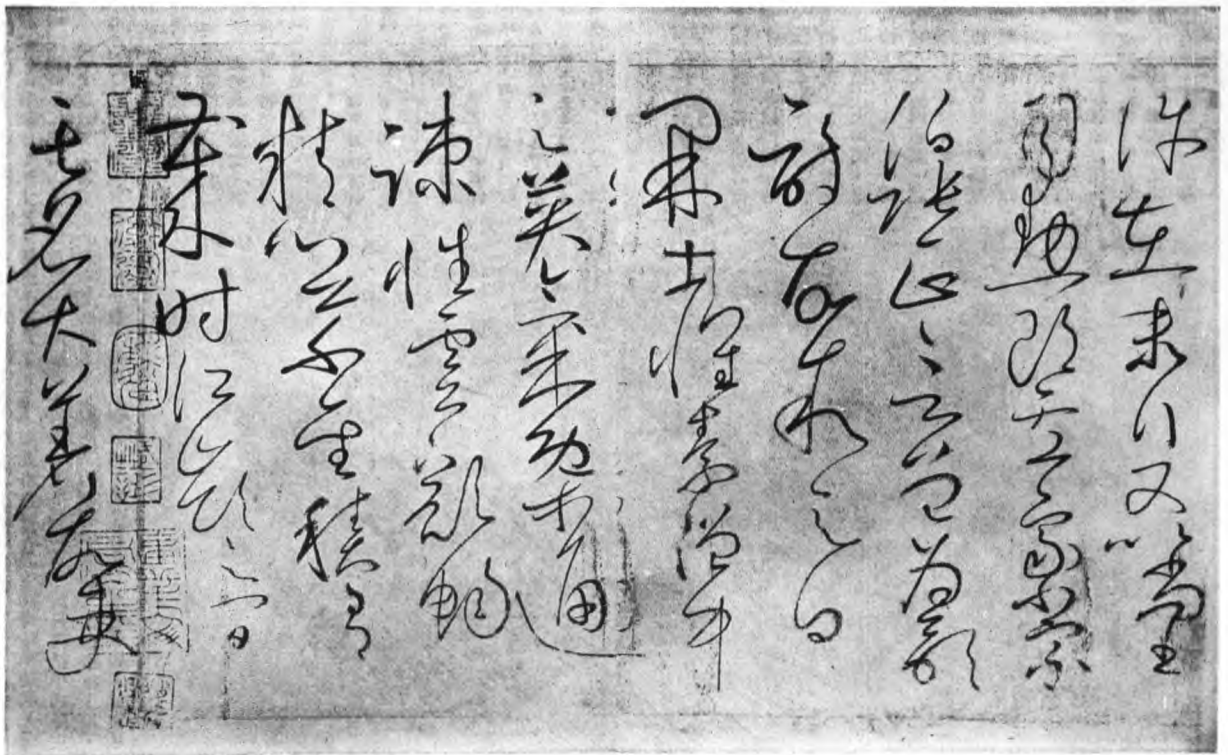 許在末行又以尚書
司勳郎盧象小宗
伯張正言曾為歌
詩故敘之曰
開士懷素僧中
之英氣概通
疎性靈豁暢
精心草聖積有
歲時江嶺之間
其名大著故吏